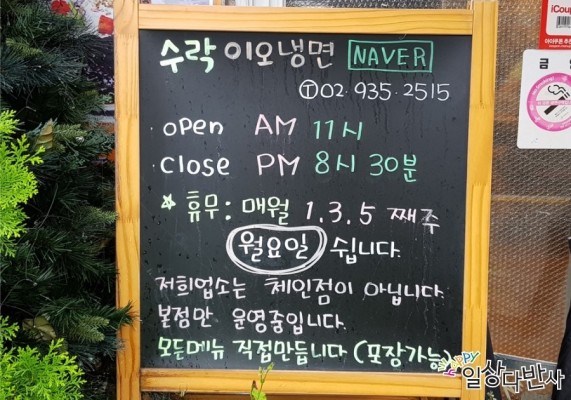 수락 이오냉면 NAVER
Ⓣ02·935·2515
open AM 11시
close PM 8시 30분
★ 휴무: 매월 1.3.5 째주
월요일 쉽니다.
저희업소는 체인점이 아닙니다.
본점만 운영중입니다.
모든메뉴 직접만듭니다 (포장가능)
iCoup
금
HAPPY
일상다반사